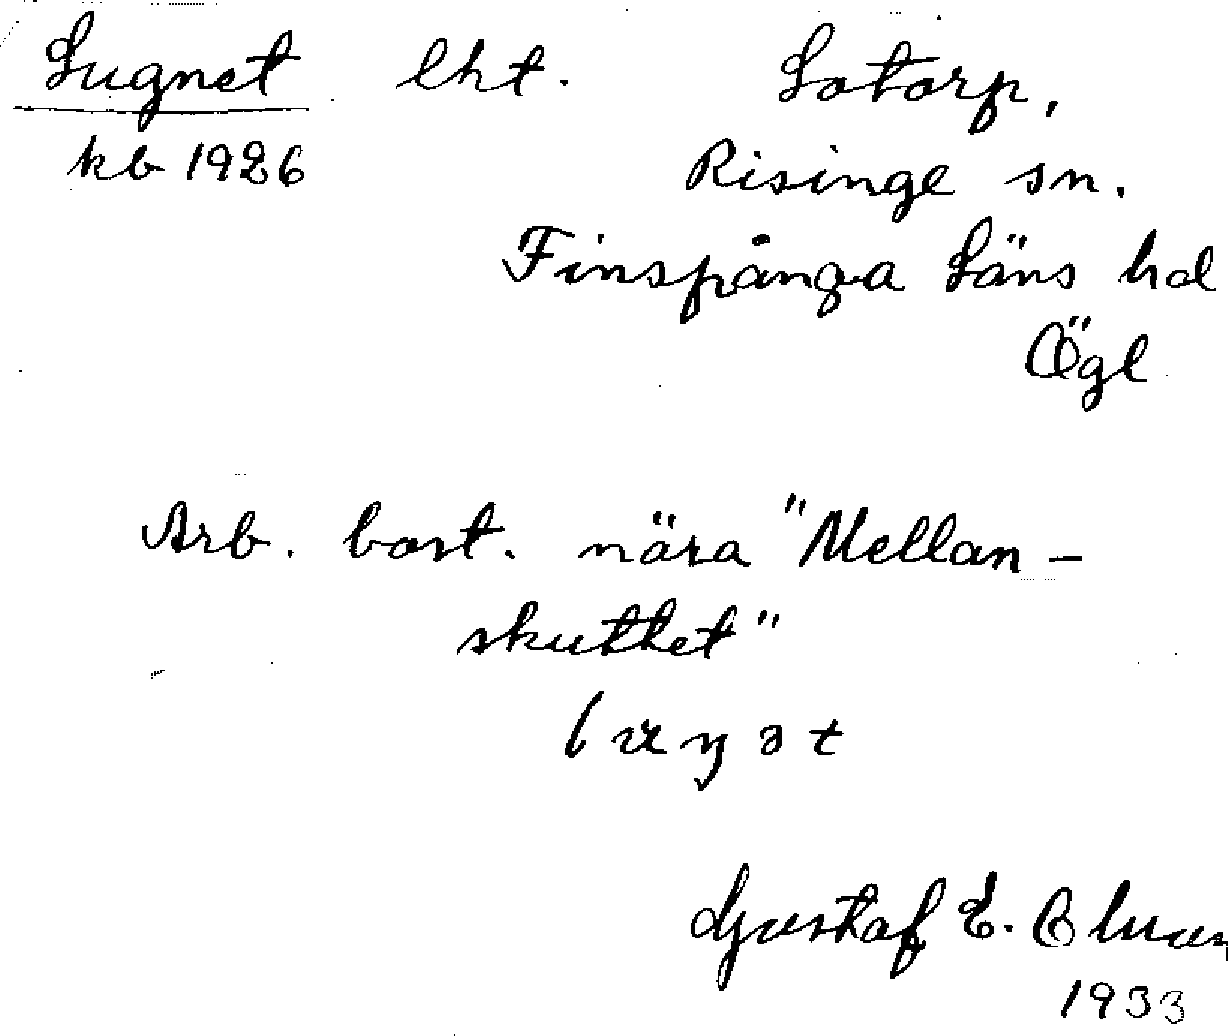 Lugnet lht. Lotorp,
kb 1926 Risinge sn.
Finspånga Läns hd
Ögl
Arb. bost. nära "Mellan-
skuttet"
Gustaf E.
1933